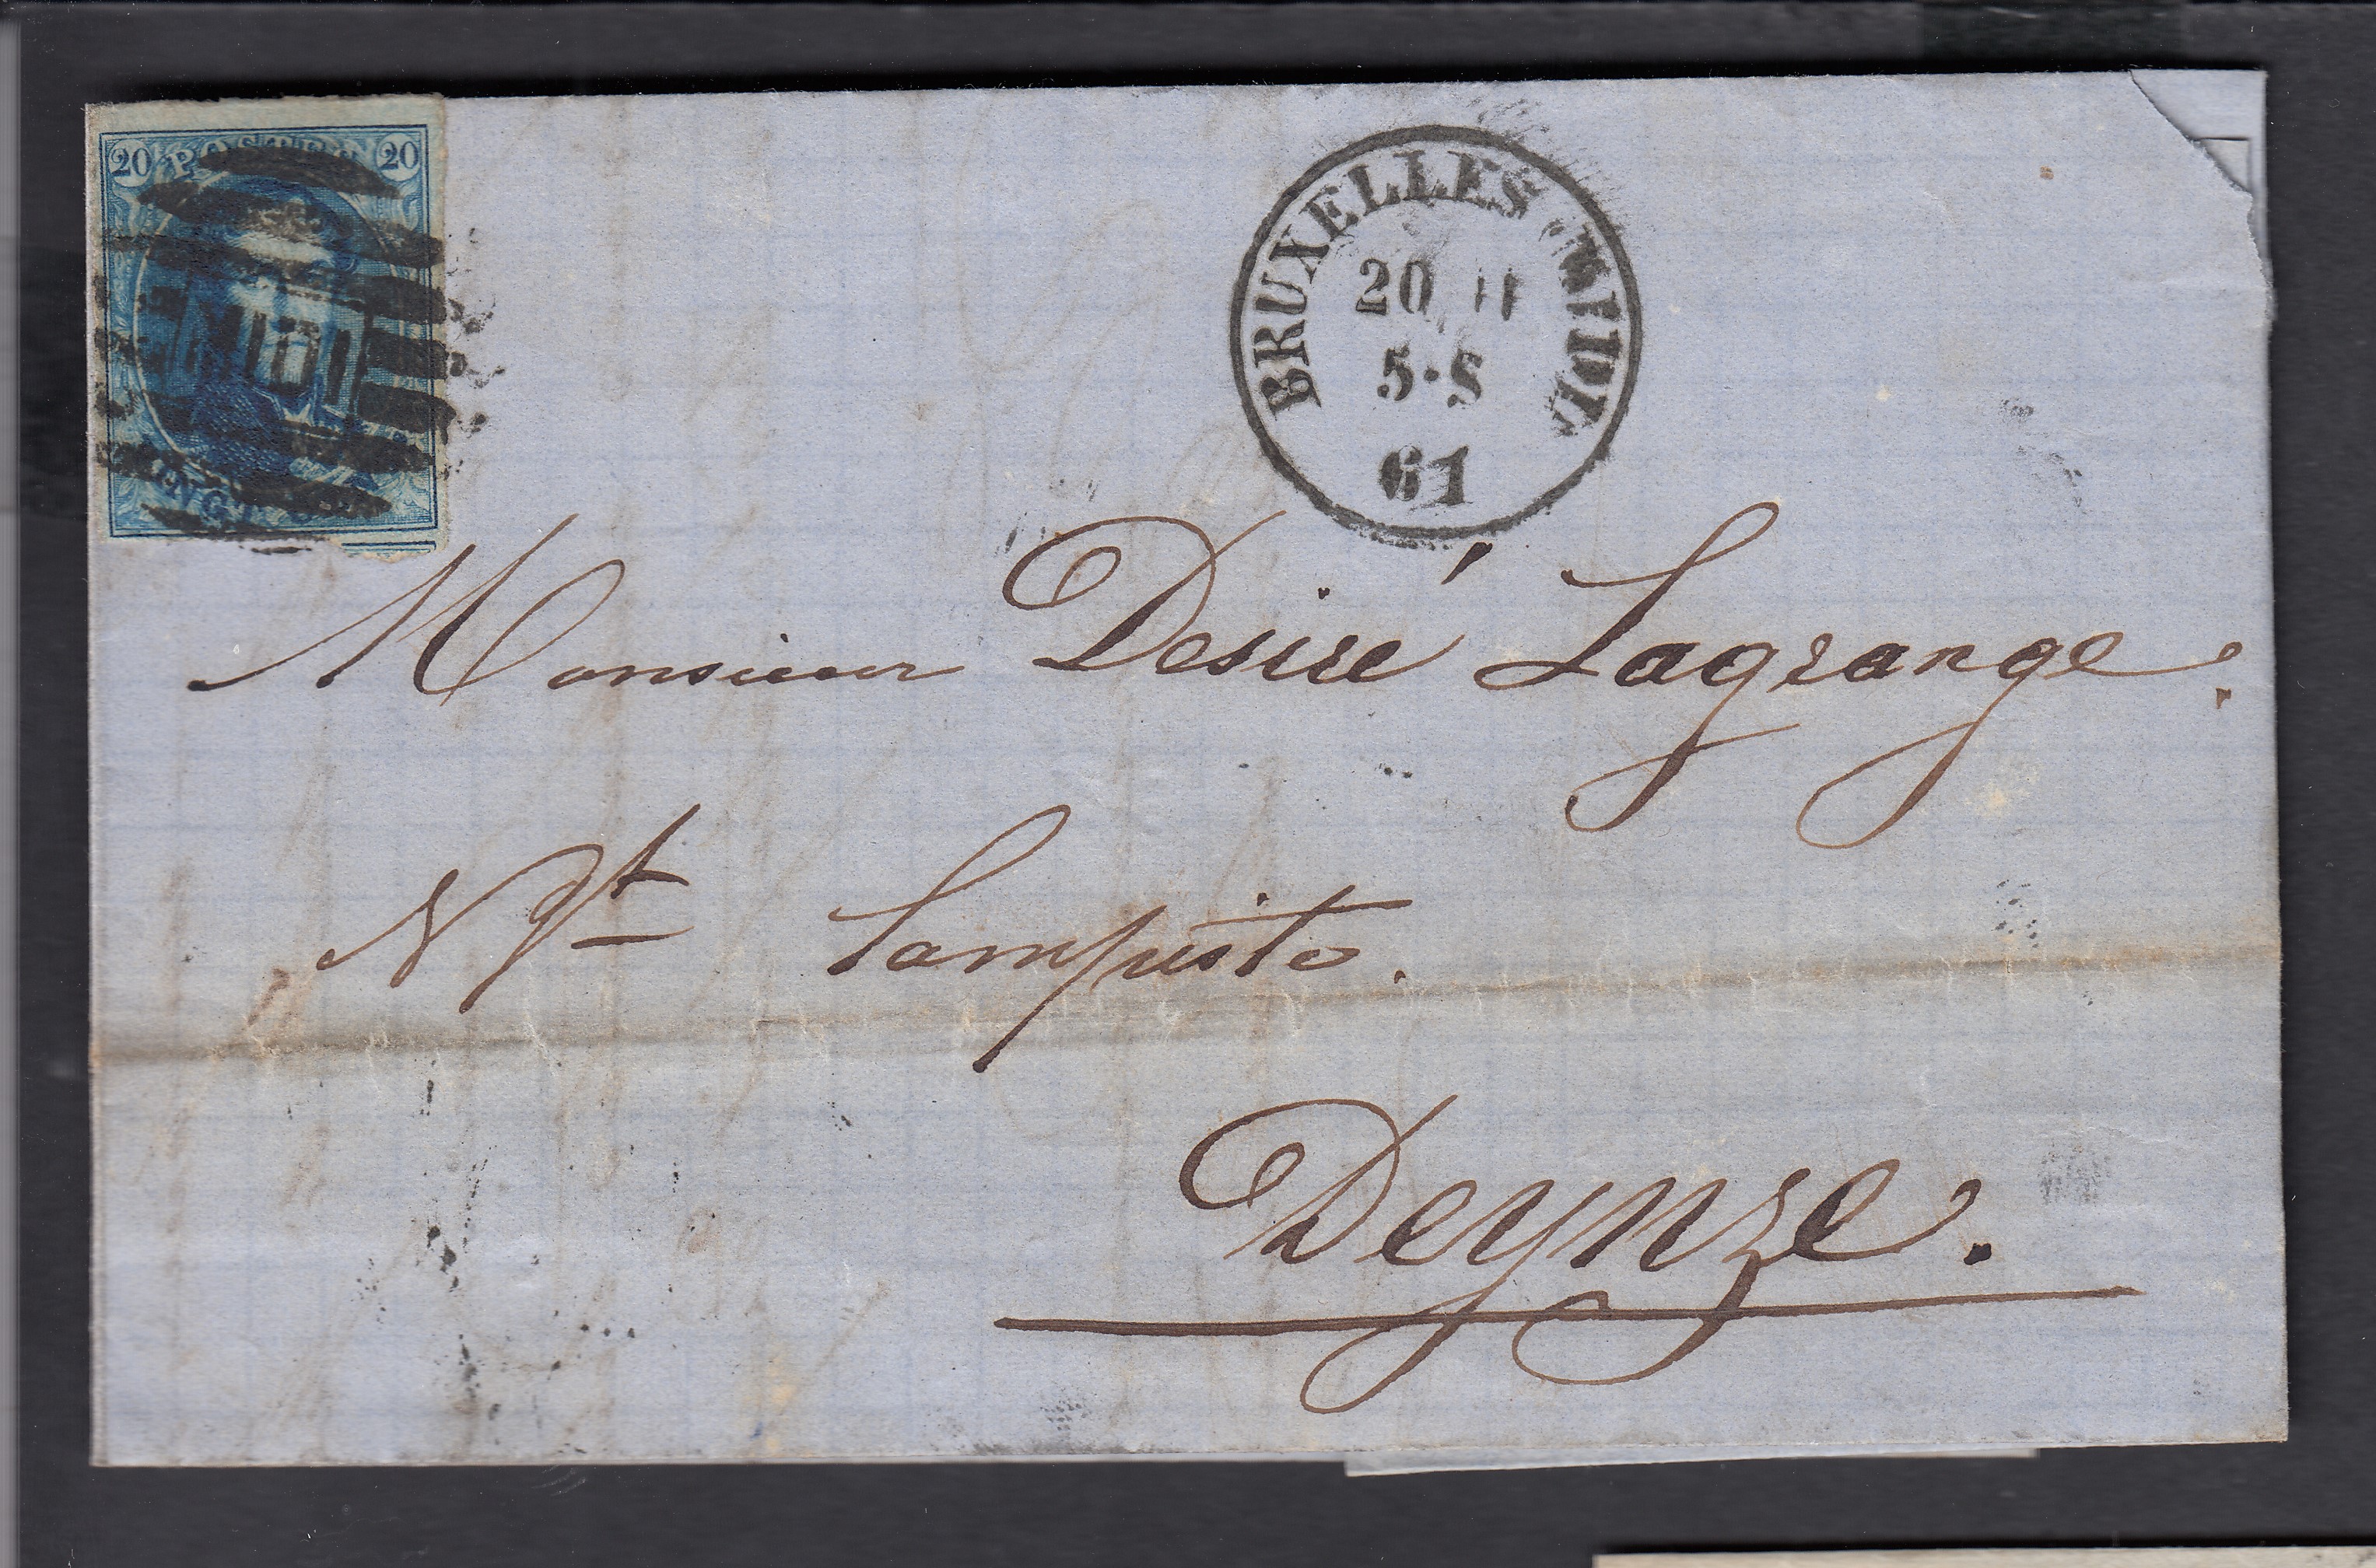 20 POSTES 20
BRUXELLES (MIDI)
20 11
5·S
61
Monsieur Desiré Lagrange.
Ngt
Deynze.